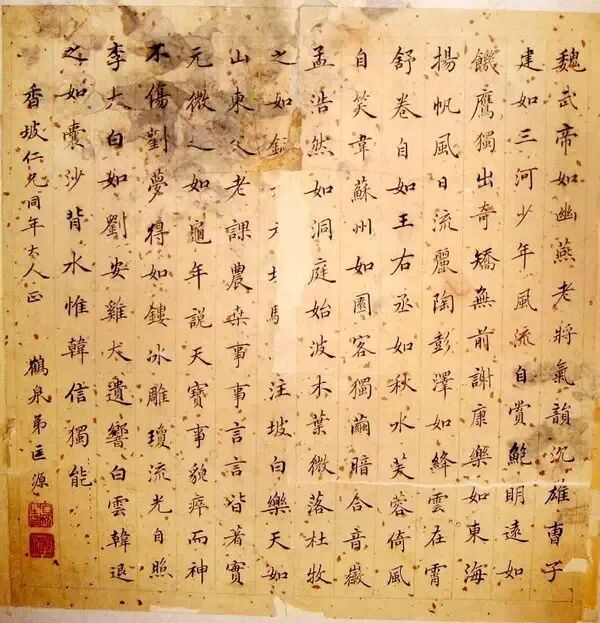 魏武帝如幽燕老將氣韻沉雄曹子
建如三河少年風流自賞鮑明遠如
饑鷹獨出奇矯無前謝康樂如東海
揚帆風日流麗陶彭澤如絳雲在霄
舒卷自如王右丞如秋水芙蓉倚風
自笑韋蘇州如園客獨繭暗合音徽
孟浩然如洞庭始波木葉微落杜牧
之如銅駿注坡白樂天如
山東父老課農桑事事言言皆著實
元微之如龜年說天寶事貌瘁而神
不傷劉夢得如鏤冰雕瓊流光自照
李太白如劉安雞犬遺響白雲韓退
之如囊沙背水惟韓信獨能
香坡仁兄同年大人正 鶴泉弟匡源